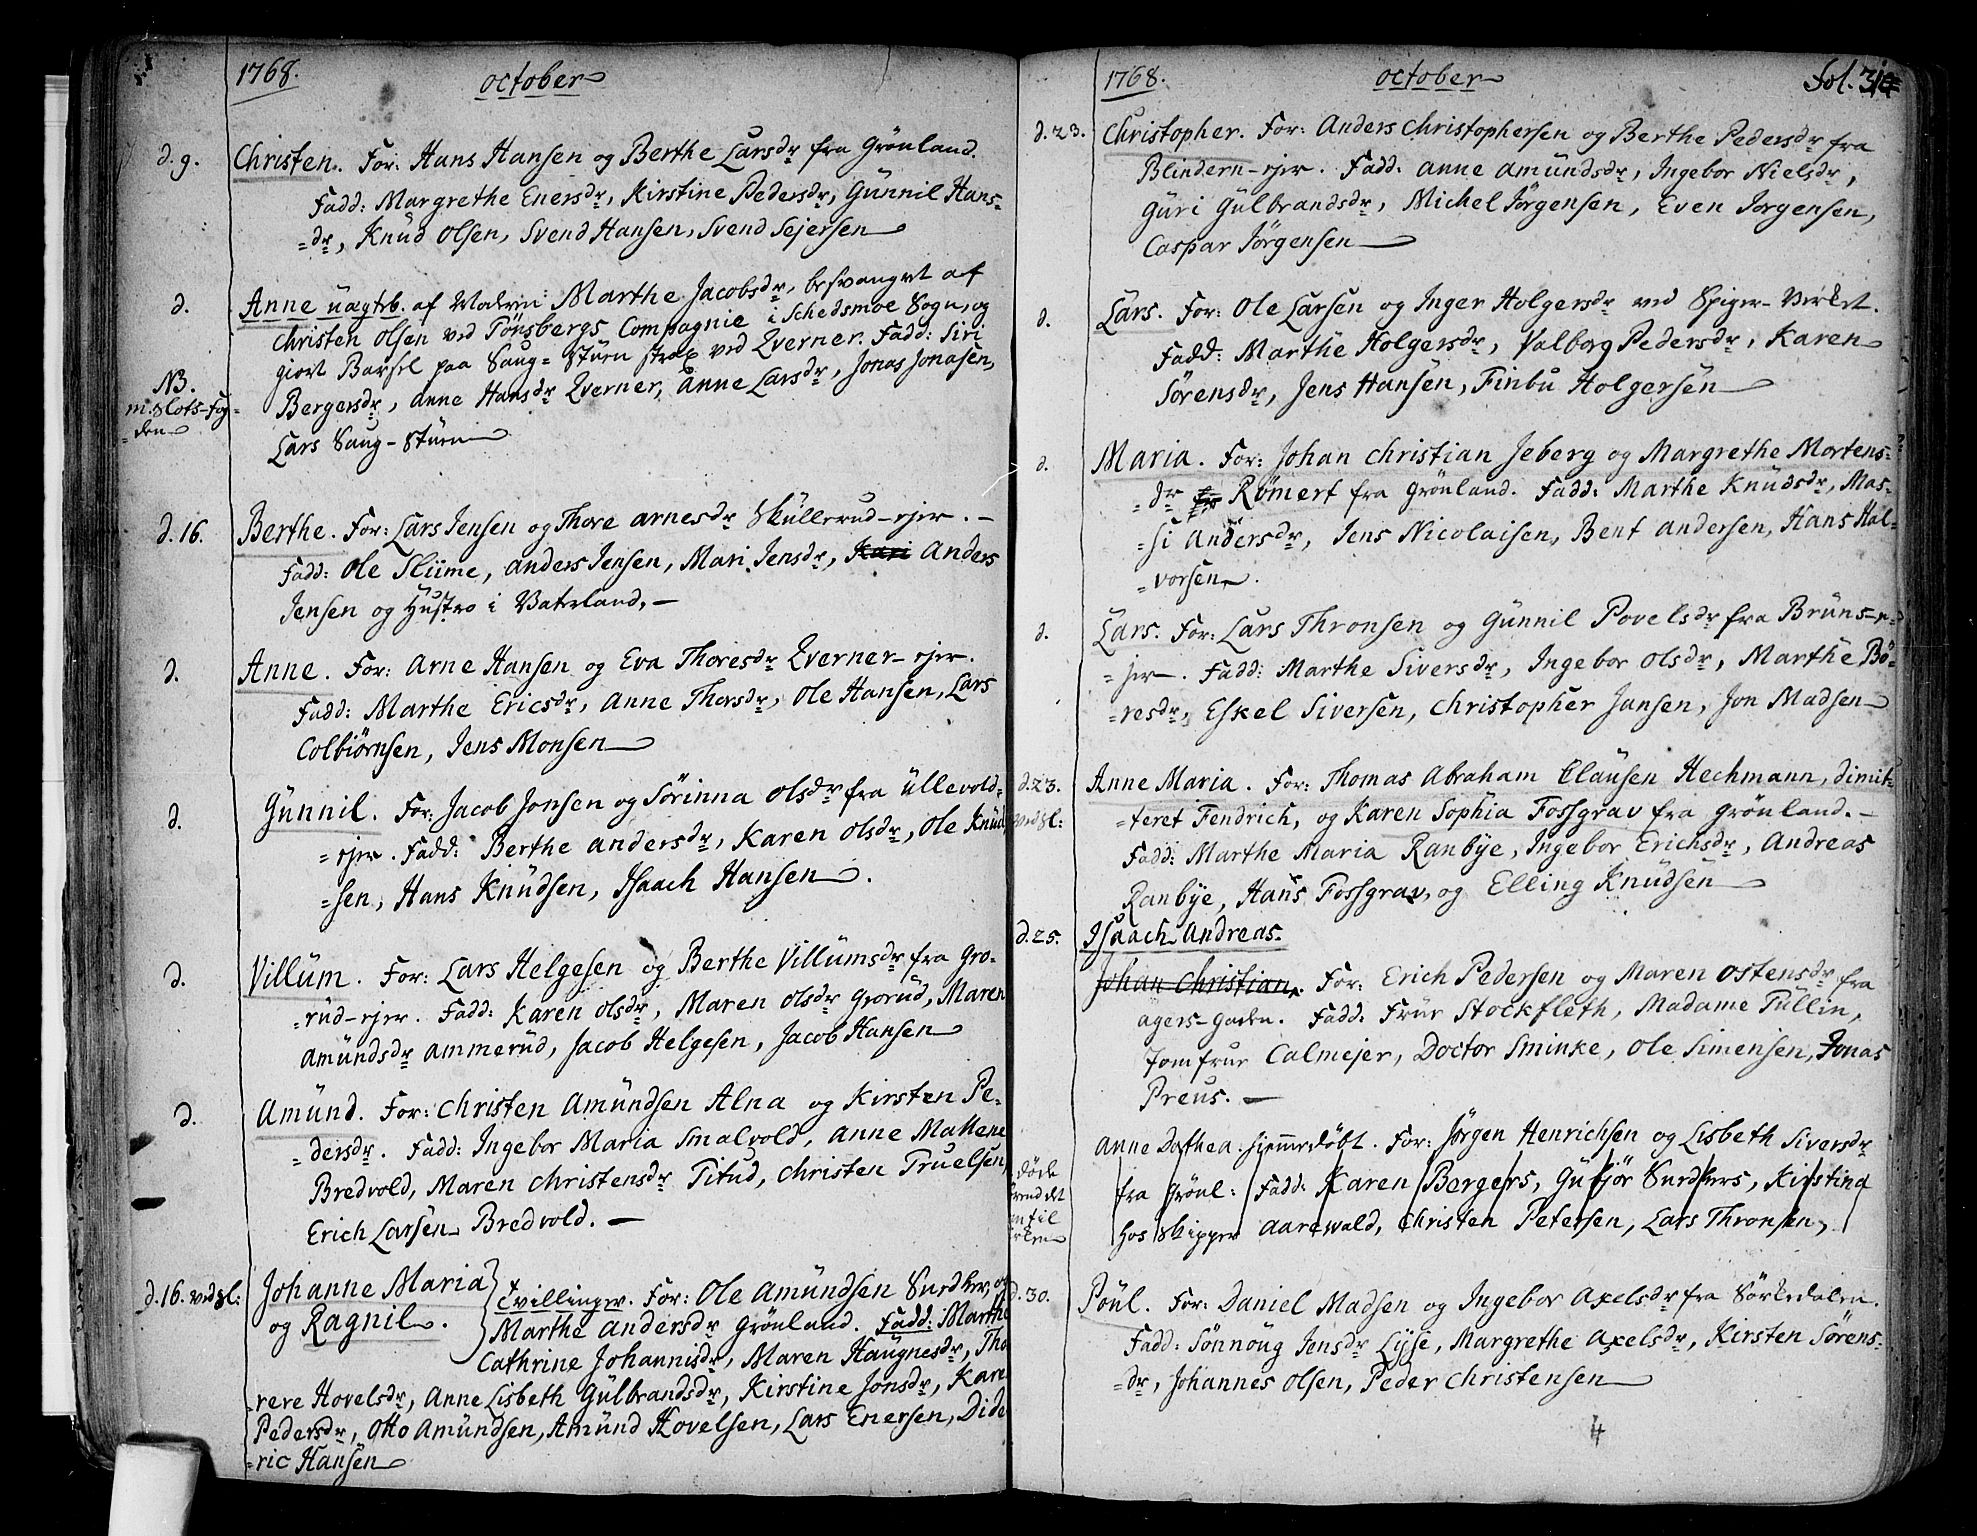 1768. October
d. 9. Christen. For: Hans Hansen og Berthe Larsdr fra Grønland.
Fadd: Margrethe Enersdr, Kirstine Pedersdr, Günnil Hans-
=dr, Knud Olsen, Svend Hansen, Svend Sejersen
d. Anne uægteb. af Moderen Marthe Jacobsdr, besvangret af
Christen Olsen ved Tönsbergs Compagnie i Schedsmoe Sogn, og
giort Barsel paa Saug=Stuen strax ved Qverner. Fadd: Siri
NB.
m. Slots-Fog=
=den
Bergersdr, Anne Hansdr Qverner, Anne Larsdr, Jonas Jonasen,
Lars Saug-Stuen
d. 16. Berthe. For: Lars Jensen og Thore Arnesdr Sküllerud-ejer. -
Fadd: Ole Sliime, Anders Jensen, Mari Jensdr, Kari Anders
Jensen og Hustro i Vaterland. -
d. Anne. For: Arne Hansen og Eva Thoresdr Qverner-ejer.
Fadd: Marthe Ericsdr, Anne Thorsdr, Ole Hansen, Lars
Colbiörnsen, Jens Monsen
d. Günnil. For: Jacob Jonsen og Sörinna Olsdr fra Üllevold-
=ejer. Fadd: Berthe Andersdr, Karen Olsdr, Ole Knüd
=sen, Hans Knüdsen, Isaach Hansen.
d. Villüm. For: Lars Helgesen og Berthe Villümsdr fra Gro-
=rüd-ejer. Fadd: Karen Olsdr, Maren Olsdr Grorüd, Maren
Amündsdr Ammerüd, Jacob Helgesen, Jacob Hansen
d. Amünd. For: Christen Amündsen Alna og Kirsten Pe-
=dersdr. Fadd: Ingebor Maria Smalvold, Anne Malene
Bredvold, Maren Christensdr Titud, Christen Truelsen
Erich Larsen Bredvold. -
d. 16. ved Hl: Johanne Maria
og Ragnil.
Tvillinger. For: Ole Amündsen Snedker, og
Marthe Andersdr Grönland. Fadd: Marthe
Cathrine Johannisdr, Maren Haügnesdr, Tho
=rere Hovelsdr, Anne Lisbeth Gülbrandsdr, Kirstine Jonsdr, Kare
Pedersdr, Otto Amündsen, Amünd Hovelsen, Lars Enersen, Dide
=ric Hansen
1768. October Fol. 314
d. 23. Christopher. For: Anders Christophersen og Berthe Pedersdr fra
Blindern-ejer. Fadd: Anne Amündsdr, Ingebor Nielsdr,
Güri Gülbrandsdr, Michel Jörgensen, Even Jörgensen,
Caspar Jörgensen
d. Lars. For: Ole Larsen og Inger Holgersdr ved Spiger-Verket.
Fadd: Marthe Holgersdr, Valborg Pedersdr, Karen
Sörensdr, Jens Hansen, Finbu Holgersen
d. Maria. For: Johan Christian Jeberg og Margrethe Mortens-
=dr Römert fra Grönland. Fadd: Marthe Knüdsdr, Mas-
=si Andersdr, Jens Nicolaisen, Bent Andersen, Hans Hal-
=vorsen.
d. Lars. For: Lars Thronsen og Günnil Povelsdr fra Brüns-e-
=jer. Fadd: Marthe Siversdr, Ingebor Olsdr, Marthe Bö-
=resdr, Eskel Siversen, Christopher Jansen, Jon Madsen
d. 23.
ved Hl:
Anne Maria. For: Thomas Abraham Clausen Heckmann, dimit-
=teret Fendrich, og Karen Sophia Fossgrav fra Grönland. -
Fadd: Marthe Maria Ranbÿe, Ingebor Erichsdr, Andreas
Ranbÿe, Hans Fossgrav, og Elling Knüdsen
d. 25. Isaach Andreas.
Johan Christian. For: Erich Pedersen og Maren Ostensdr fra
Agers-Gaden. Fadd: Frue Stockfleth, Madame Tüllin,
Jomfrue Calmejer, Doctor Sminke, Ole Simensen, Jonas
Preus. -
Anne Dorthea hjemmedöbt. For: Jörgen Henrichsen og Lisbeth Siversdr
fra Grönl: Fadd: Karen Bergers, Gubjör Snedkers, Kirstina
hos Skipper Aarewald, Christen Petersen, Lars Thronsen,
döde
d. 30. Poul. For: Daniel Madsen og Ingebor Axelsdr fra Sörkedalen.
Fadd: Sönnoüg Jensdr Lyse, Margrethe Axelsdr, Kirsten Sörens-
=dr, Johannes Olsen, Peder Christensen